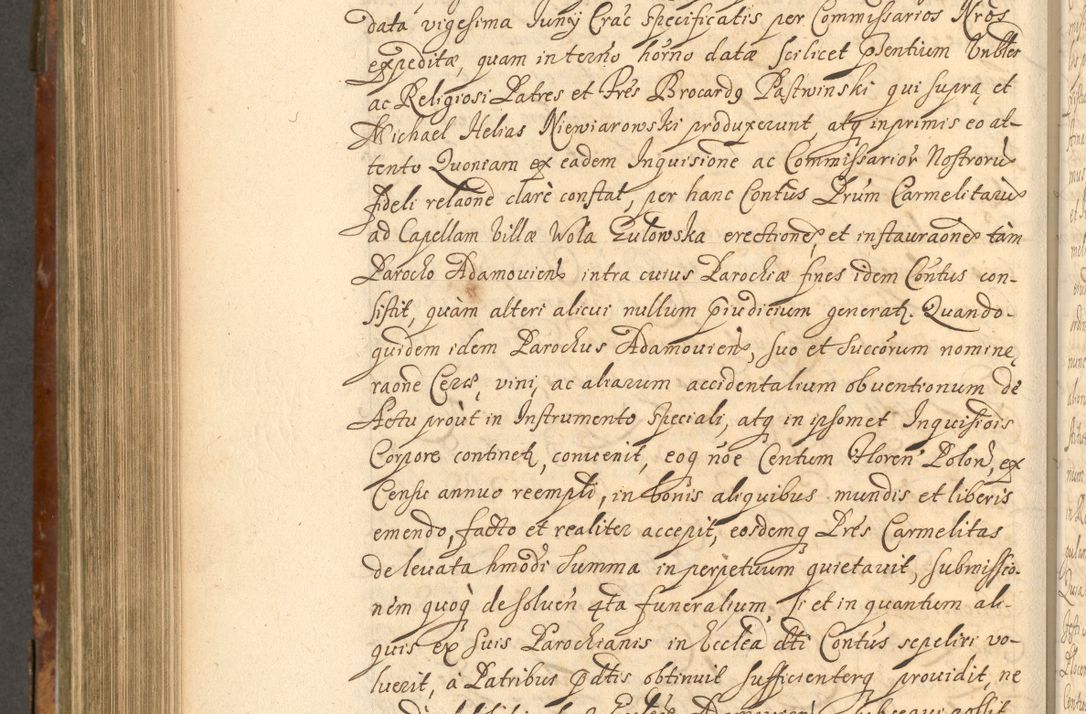 data vigesima Iunÿ Crac specificatis per Commissarios Nros
expeditæ, quam in terno horno datæ scilicet pśentium Vnbles
ac Religiosi Patres et Frēs Brocardg Pastwinski qui suprą et
Michael Helias Niewiarowski produxerunt, atq inprimis eo at-
tento Quoniam ex eadem Inquisione ac Commissarior Nostroru
fideli relaone clarè constat, per hanc Contus Prum Carmelitaru
ad Capellam Villæ Wola Gulowska erectione, et instauraone tàm
Parocho Adamovien intra cuius Parochiæ fines idem Contus con-
sistit, quàm alteri alicui nullum piudicium generat. Quando-
quidem idem Parochus Adamovien, suo et succorum nominę
raone Ceræ, vini, ac aliarum accidentalium obventionum de
Actu proùt in Instrumento speciali, atq in ipsomet Inquisiois
Corpore continet, convenit, eoq noe Centum Floren Polon, ex
Censu annuo reempti, in bonis aliquibus mundis et liberis
emendo, facto et realiter accepit, eosdemq Pres Carmelitas
de levata hmodi Summa in perpetuum quietavit, submissio-
nem quoq de solven 4ta funeralium si et in quantum ali-
quis ex suis Parochianis in Ecclea dti Contus sepeliri vo-
luerit, à Patribus pdtis obtinuit sufficienterq providit, ne